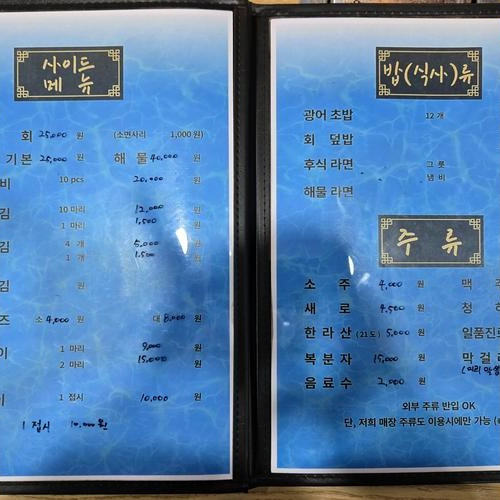 사이드
메뉴
회 25,000 원 (소면사리 1,000원)
기본 25,000 원 해물 40,000 원
비 10 pcs 20,000 원
김 10 마리 12,000 원
1 마리 1,500
김 4 개 5,000 원
1 개 1,500
김 원
즈 소 4,000 원 대 8,000 원
이 1 마리 9,000 원
2 마리 15,000
이 1 접시 10,000 원
1 접시 10,000 원
밥(식사)류
광어 초밥 12 개
회 덮밥
후식 라면 그릇
냄비
해물 라면
주 류
소 주 4,000 원 맥
새 로 4,500 원 청
한라산 (21도) 5,000 원 일품진로
복분자 15,000 원 막걸리
음료수 2,000 원
외부 주류 반입 OK
단, 저희 매장 주류도 이용시에만 가능